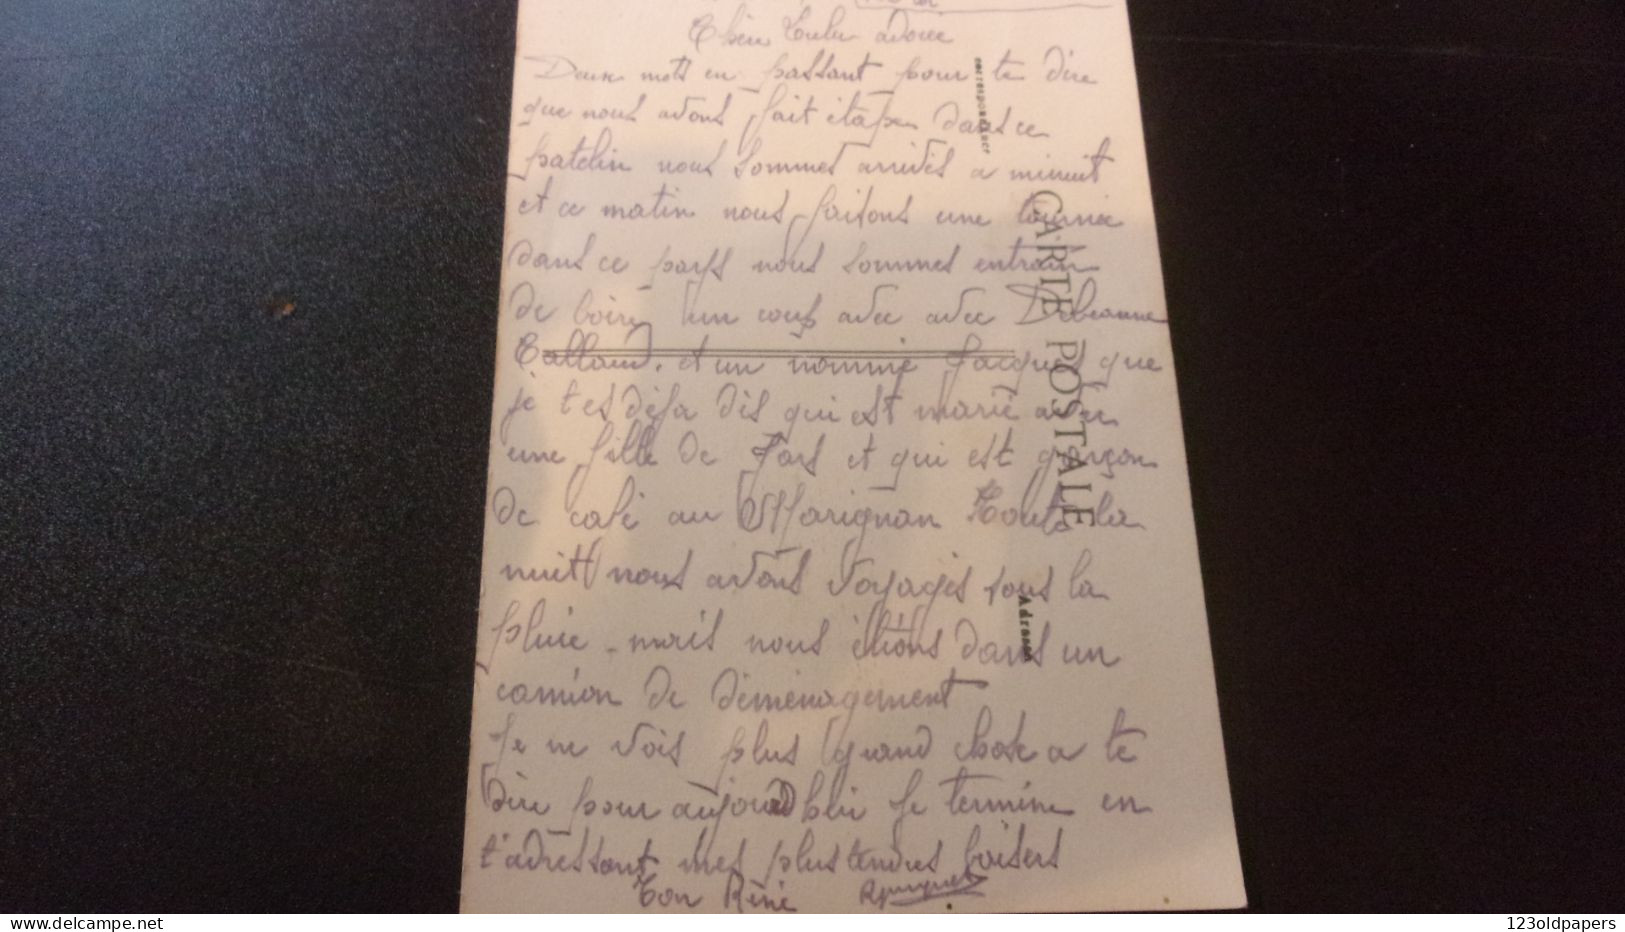 Chère Lulu adorée
Deux mots en passant pour te dire
que nous avons fait étape dans ce
patelin nous sommes arrivés a minuit
et ce matin nous faisons une tournée
dans ce pays nous sommes entrain
de boire un coup avec avec
et un nommé Jacques que
je t es déja dis qui est marié avec
une fille de Fors et qui est garçon
de café au Marignan Toute la
nuit nous avons voyagés sous la
pluie - mais nous étions dans un
camion de déménagement
Je ne vois plus grand chose a te
dire pour aujourd hui Je termine en
t'adressant mes plus tendres baisers
Ton Réné
correspondance
CARTE POSTALE
Adresse
123oldpapers